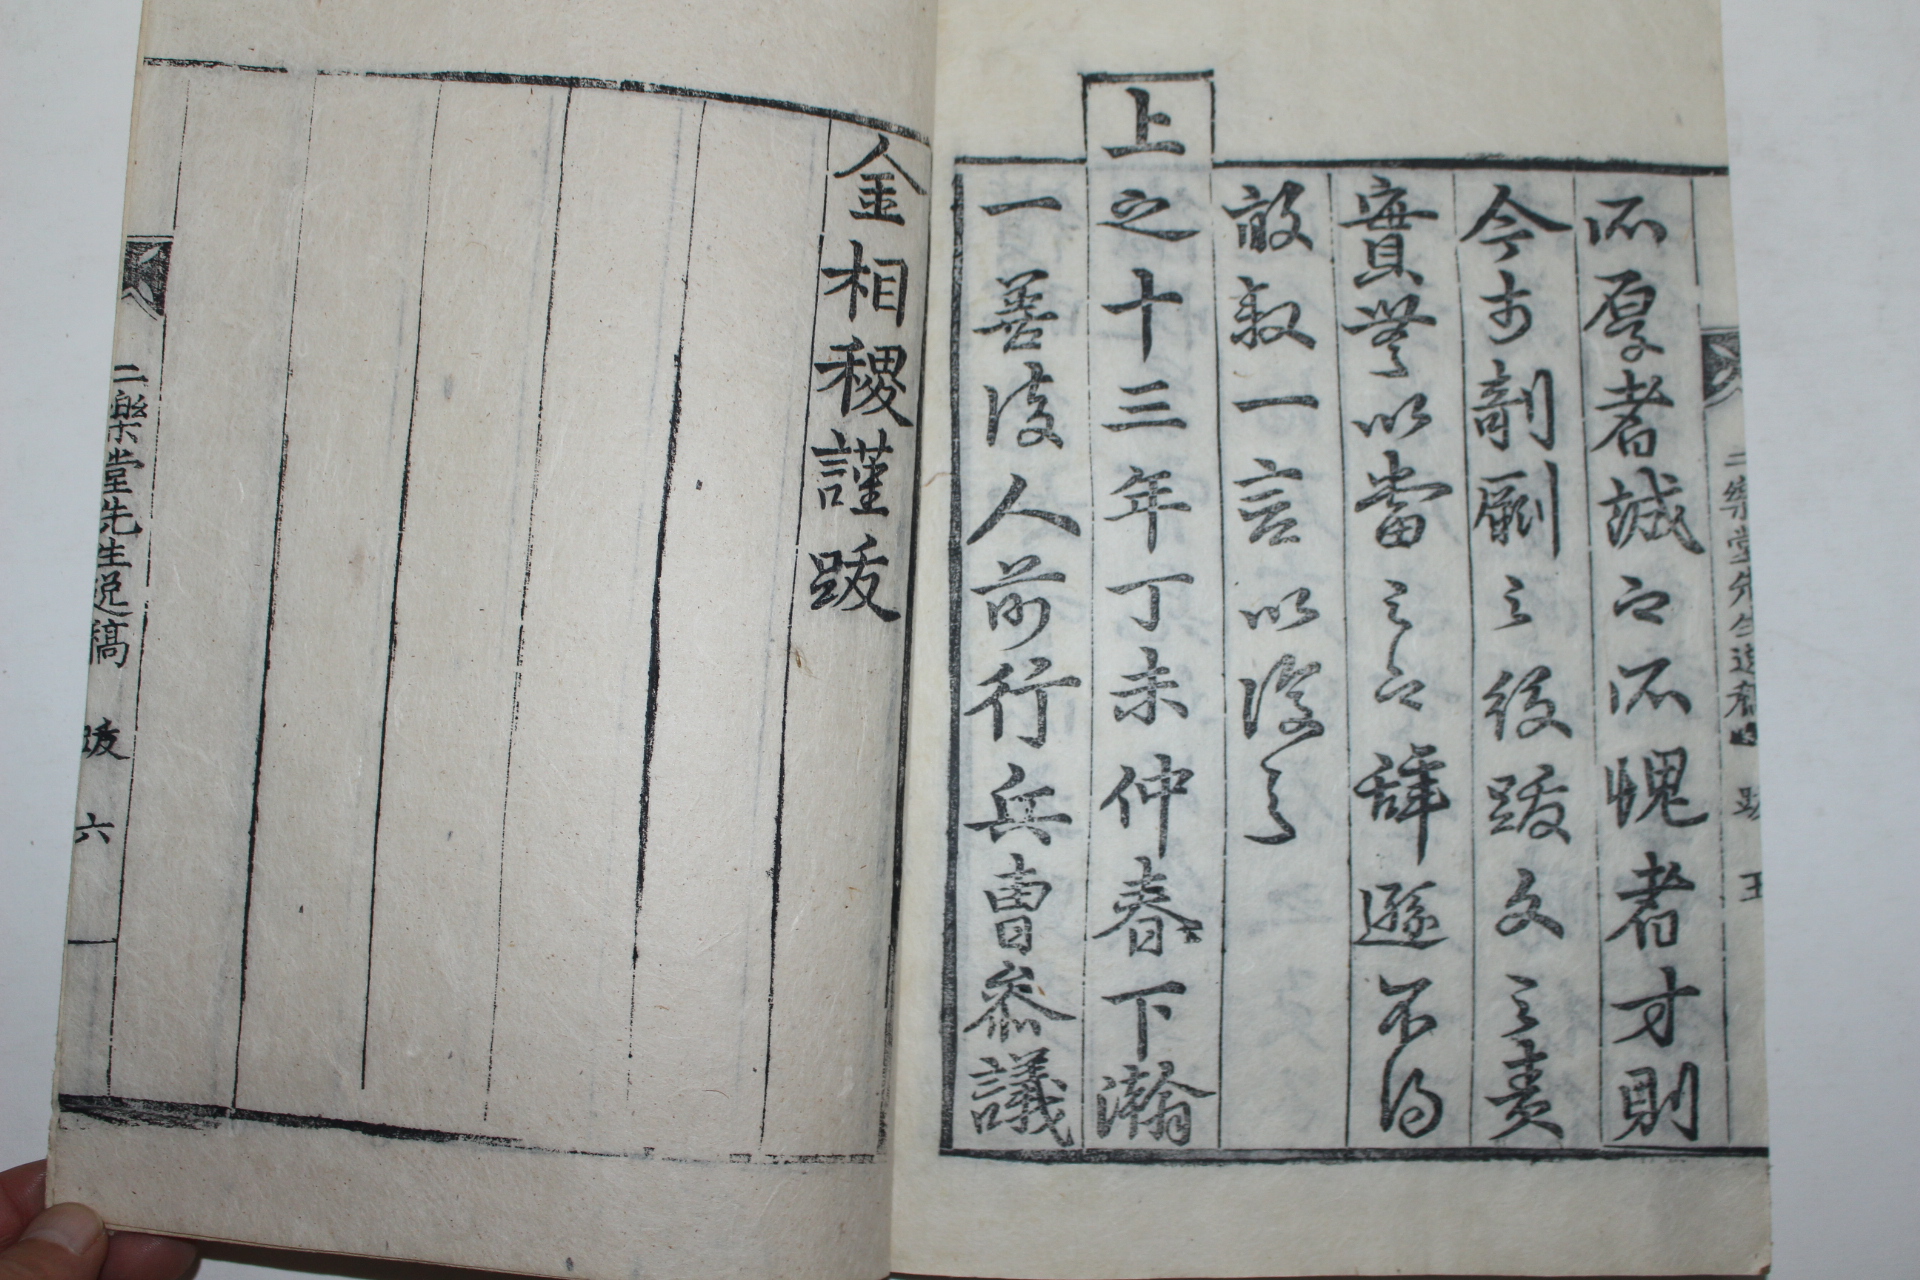 所厚者誠也所愧者才則
今於剞劂之役跋文之責
實無以當之也辭遜不得
敢叙一言以證之
上之十三年丁未仲春下瀚
一善后人前行兵曹參議
金相稷謹跋
二樂堂先生逸稿 跋 五
二樂堂先生逸稿 跋 六